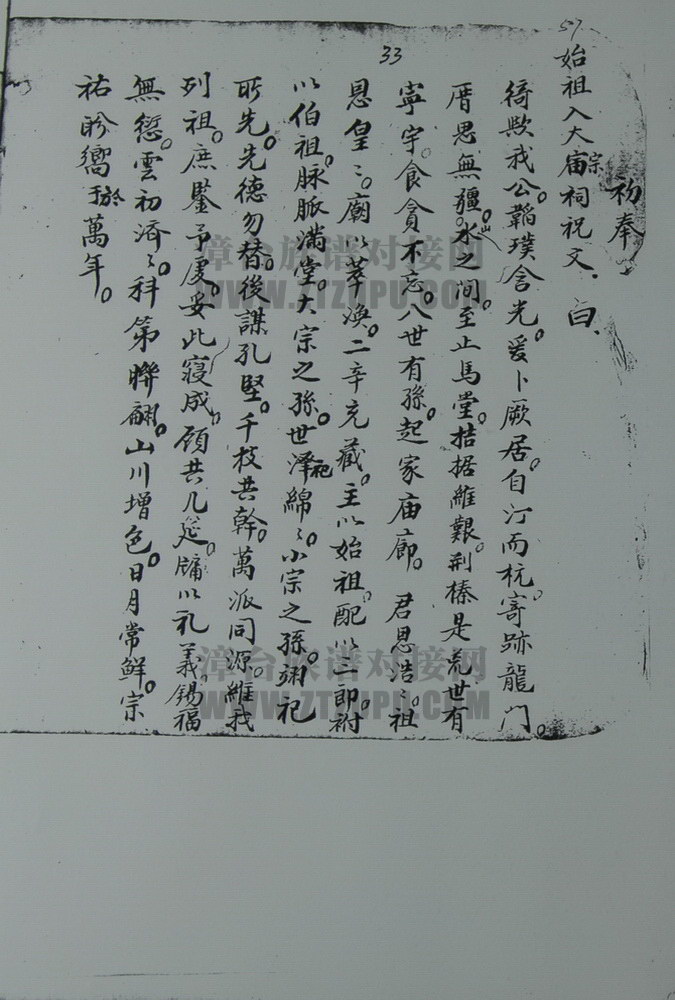 57
33
初奉
始祖入大宗庙祠祝文．白．
猗歟我公。韜璞含光。爰卜厥居。自汀而杭。寄跡龍門。
厝思無疆。山水之间。至止馬堂。拮据維艱。荆榛是荒世有
寧宇。食貧不忘。八世有孫。起家庙廊。君恩浩〻。祖
恩皇〻。廟以萃渙。二辛克藏。主以始祖。配以三郎。祔
以伯祖。脉脈满堂。大宗之孫。世祀泽綿〻。小宗之孫。翊祀
所先。先德勿替。後謀孔堅。千枝共幹。萬派同源。維我
列祖。庶鑒予虔。妥此寝成。頎共几筵。牗以礼義。錫福
無愆。雲初濟〻。科第聯翩。山川增色。日月常鮮。宗
祐盼嚮於萬年。
漳台族谱对接网
WWW.ZTZUPU.COM
漳台族谱对接网
WWW.ZTZUPU.COM